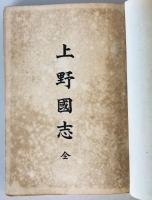 上野國志 全